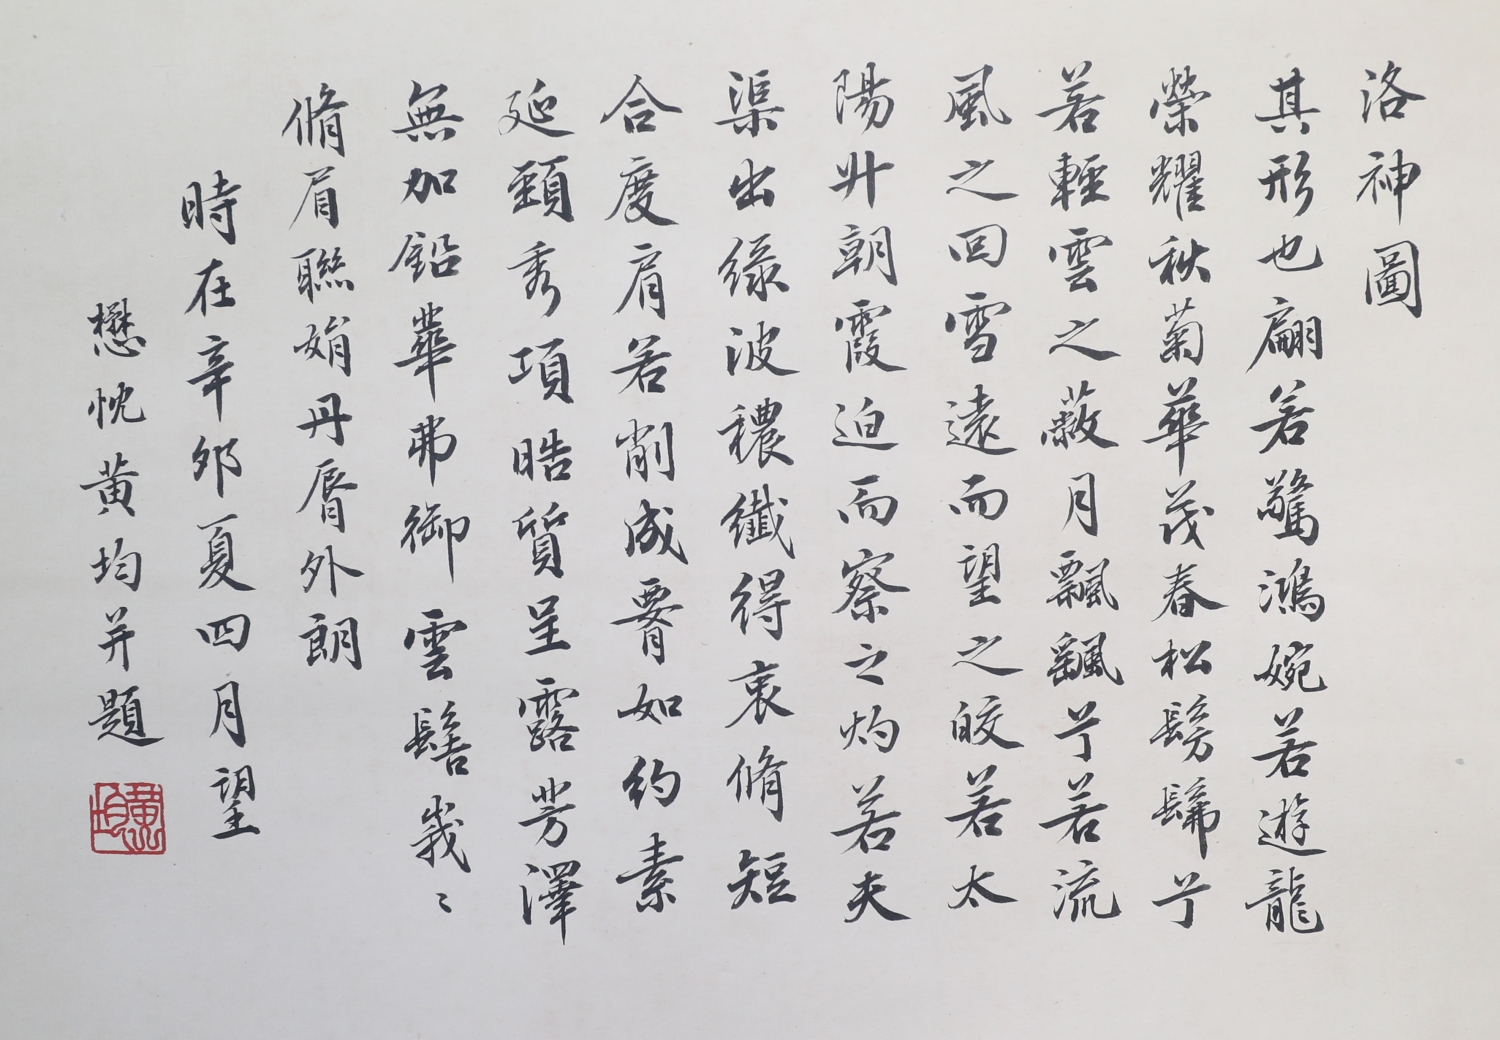 洛神圖
其形也翩若驚鴻婉若遊龍
榮耀秋菊華茂春松髣髴兮
若輕雲之蔽月飄飖兮若流
風之回雪遠而望之皎若太
陽升朝霞迫而察之灼若夫
渠出綠波穠纖得衷脩短
合度肩若削成腰如約素
延頸秀項晧質呈露芳澤
無加鉛華弗御雲髻峩〻
脩眉聯娟丹脣外朗
時在辛卯夏四月望
懋忱黃均并題
黃均